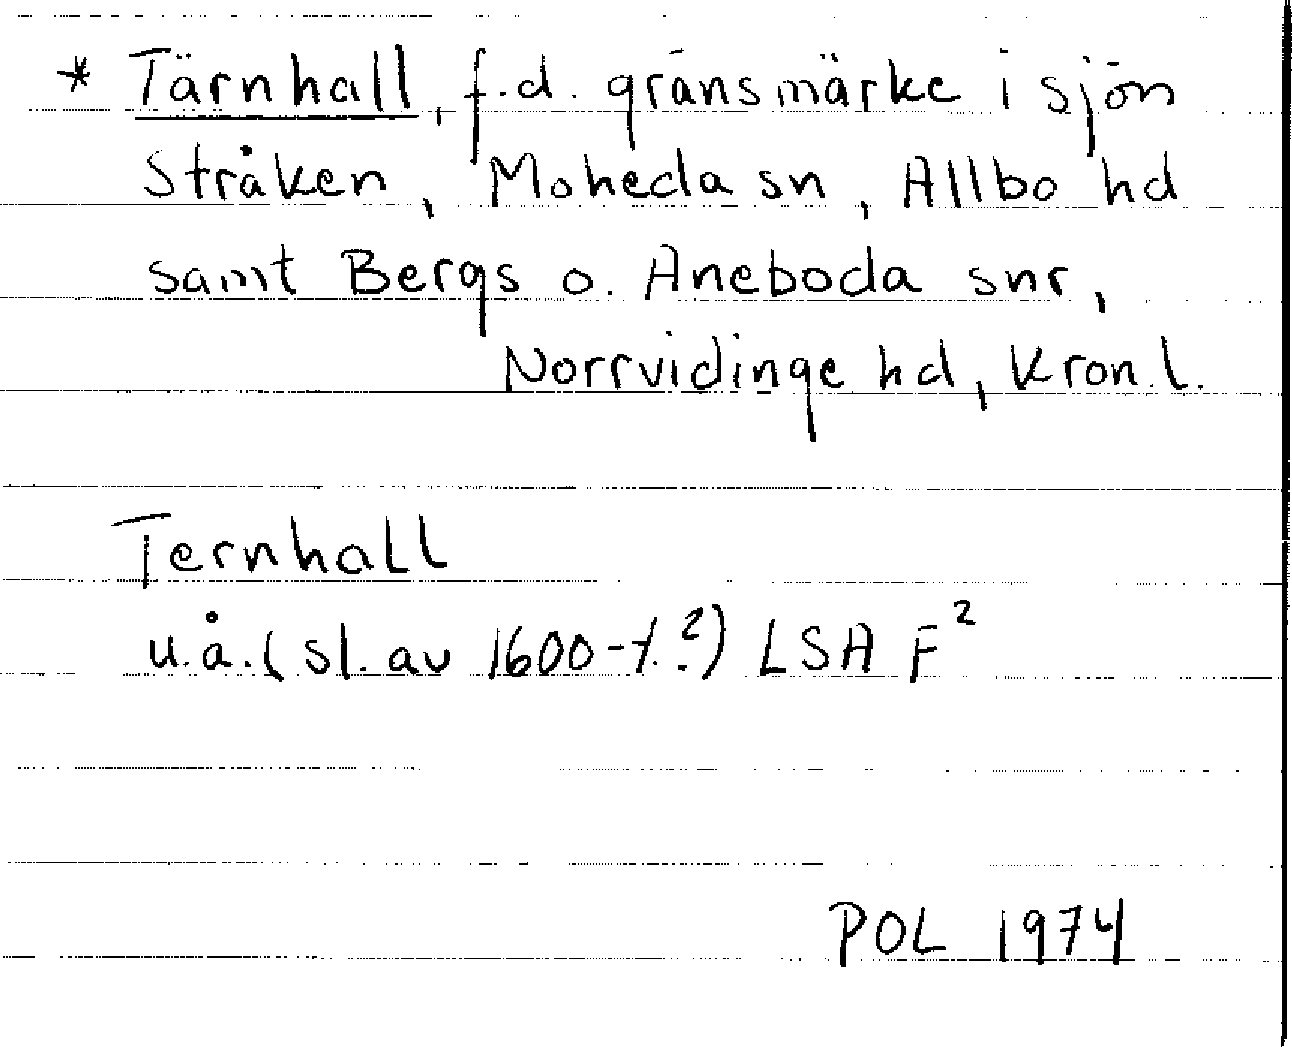 * Tärnhall, f.d. gränsmärke i sjön
Stråken, Moheda sn, Allbo hd
samt Bergs o. Aneboda snr,
Norrvidinge hd, Kron.l.
Ternhall
u.å. (sl. av 1600-t.?) LSA F²
POL 1974